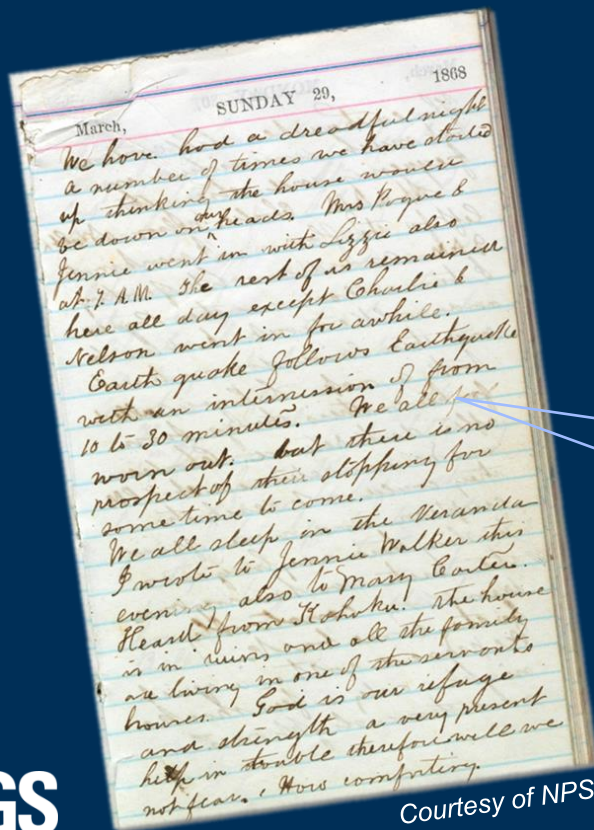 March, SUNDAY 29, 1868
We have had a dreadful night
a number of times we have started
up thinking the house would
be down on our heads. Mrs Pogue &
Jennie went in with Lizzie also
at 7 A.M. The rest of us remained
here all day except Charlie &
Nelson went in for awhile.
Earth quake follows Earthquake
with an intermission of from
10 to 30 minutes. We all
worn out. but there is no
prospect of their stopping for
some time to come.
We all sleep in the Veranda
I wrote to Jennie Walker this
evening also to Mary Carter.
Heard from Kahuku. the house
is in ruins and all the family
are living in one of the servants
houses. God is our refuge
and strength a very present
help in trouble therefore will we
not fear. How comforting.
GS
Courtesy of NPS